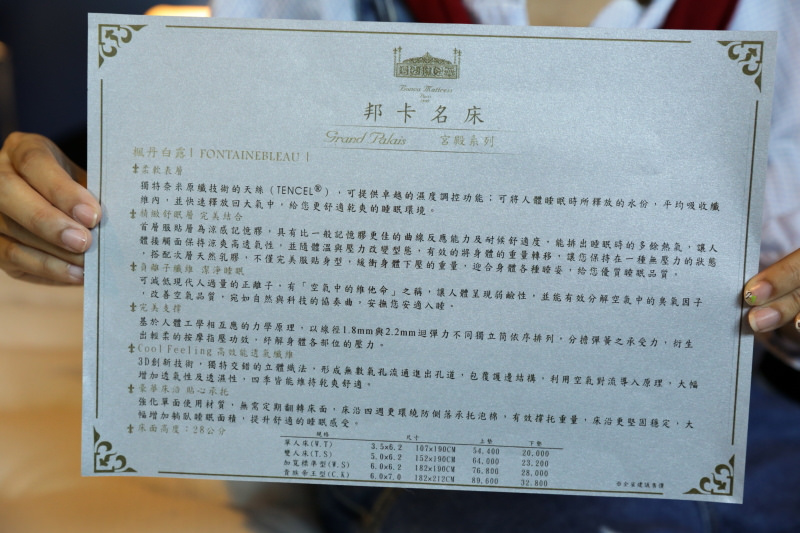 邦卡名床
Grand Palais 宮殿系列
楓丹白露| FONTAINEBLEAU |
柔軟表層
獨特奈米原纖技術的天絲(TENCEL®)，可提供卓越的濕度調控功能；可將人體睡眠時所釋放的水份，平均吸收纖
維內，並快速釋放回大氣中，給您更舒適乾爽的睡眠環境。
精緻舒眠層 完美結合
首層服貼層為涼感記憶膠，具有比一般記憶膠更佳的曲線反應能力及耐候舒適度，能排出睡眠時的多餘熱氣，讓人
體接觸面保持涼爽高透氣性，並隨體溫與壓力改變型態，有效的將身體的重量轉移，讓您保持在一種無壓力的狀態
，搭配次層天然乳膠，不僅完美服貼身型，緩衝身體下壓的重量，迎合身體各種睡姿，給您優質睡眠品質。
負離子纖維 潔淨睡眠
可減低現代人過量的正離子，有「空氣中的維他命」之稱，讓人體呈現弱鹼性，並能有效分解空氣中的臭氧因子
，改善空氣品質，宛如自然與科技的協奏曲，安撫您安適入睡。
完美支撐
基於人體工學相互應的力學原理，以線徑1.8mm與2.2mm迴彈力不同獨立筒依序排列，分擔彈簧之承受力，衍生
出輕柔的按摩指壓功效，紓解身體各部位的壓力。
Cool Feeling 高效能透氣纖維
3D創新技術，獨特交錯的立體織法，形成無數氣孔流通進出孔道，包覆護邊結構，利用空氣對流導入原理，大幅
增加透氣性及透濕性，四季皆能維持乾爽舒適。
豪華床沿 貼心承托
強化單面使用材質，無需定期翻轉床面，床沿四週更環繞防側落承托泡棉，有效撐托重量，床沿更堅固穩定，大
幅增加躺臥睡眠面積，提升舒適的睡眠感受。
床面高度：28公分
規格 尺寸 上墊 下墊
單人床(W.T) 3.5x6.2 107x190CM 54,400 20,000
雙人床(T.S) 5.0x6.2 152x190CM 64,000 23,200
加寬標準型(W.S) 6.0x6.2 182x190CM 76,800 28,000
貴族帝王型(C.K) 6.0x7.0 182x212CM 89,600 32,800